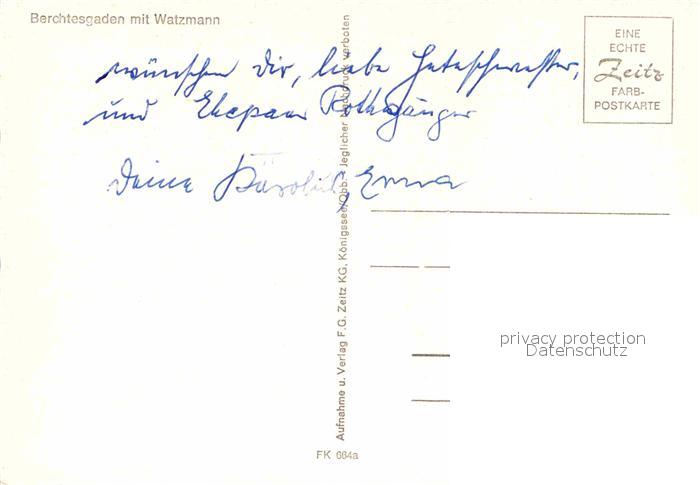 Berchtesgaden mit Watzmann
EINE
ECHTE
Zeitz
FARB-
POSTKARTE
wünschen Dir, liebe
und Ehepaar Rothgänger
Deine Emma
Aufnahme u. Verlag F.G. Zeitz KG, Königssee/Obb. Jeglicher Nachdruck verboten
privacy protection
Datenschutz
FK 684a